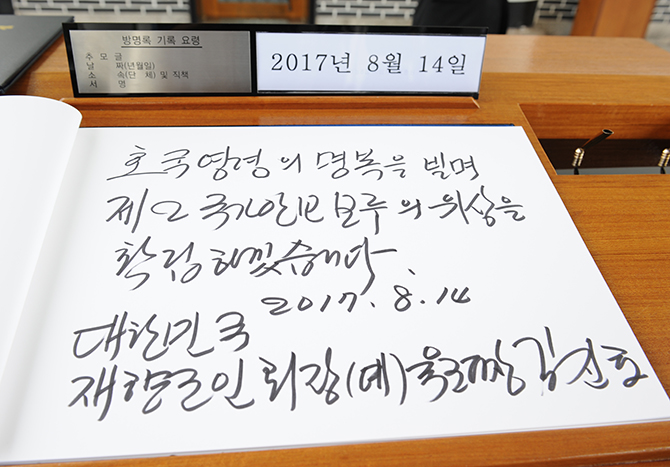 방명록 기록 요령
추 모 글
날 짜(년월일)
소 속(단 체) 및 직책
서 명
2017년 8월 14일
호국영령의 명복을 빌며
제2 국가안보 보루의 위상을
확립하겠습니다.
2017. 8. 14
대한민국
재향군인회장(예)육군대장 김진호